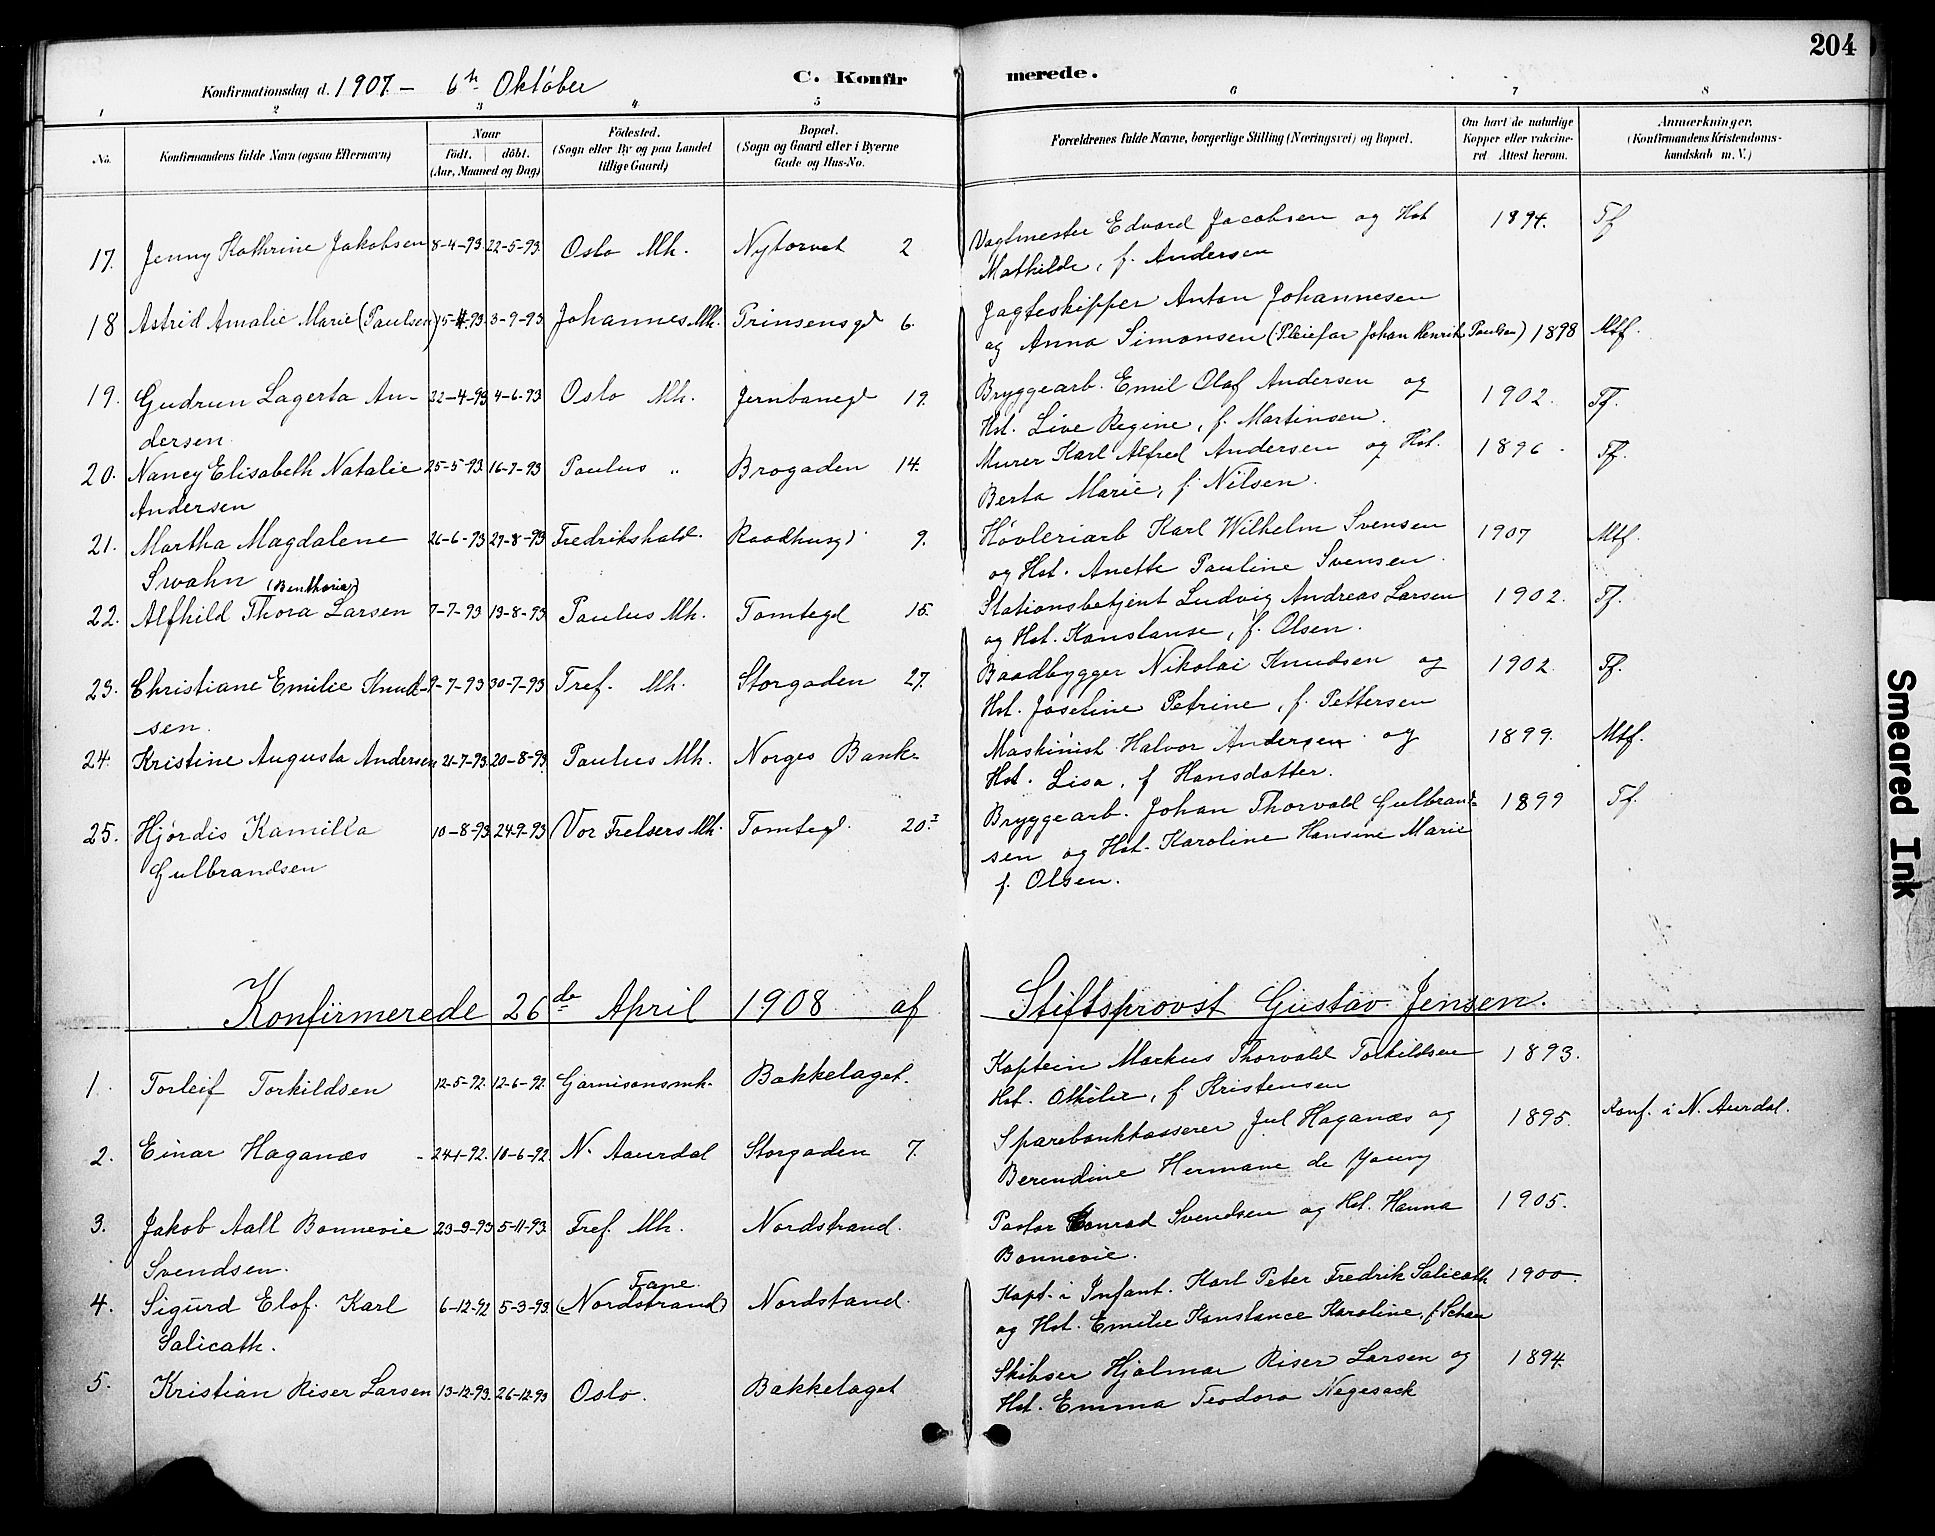 204
Konfirmationsdag d. 1907. - 6te Oktober
C. Konfirmerede.
1 2 3 4 5 6 7 8
No.
Konfirmandens fulde Navn (ogsaa Efternavn)
Naar
födt. döbt.
(Aar, Maaned og Dag)
Födested.
(Sogn eller By og paa Landet
tillige Gaard)
Bopæl.
(Sogn og Gaard eller i Byerne
Gade og Hus-No.
Forældrenes fulde Navne, borgerlige Stilling (Næringsvei) og Bopæl.
Om havt de naturlige
Kopper eller vakcine-
ret Attest herom.
Anmærkninger.
(Konfirmandens Kristendoms-
kundskab m. V.)
17. Jenny Kathrine Jakobsen 8-4-93 22-5-93 Oslo Mh. Nytorvet 2 Vagtmester Edvard Jacobsen og Hst 1894. Tf
Mathilde, f. Andersen
18 Astrid Amalie Marie (Paulsen) 15-4-93. 3-9-93 Johannes Mh. Prinsensgd 6. Jagteskipper Anton Johannesen
og Anna Simonsen (Pleiefar Johan Henrik Paulsen) 1898 Mtf.
19. Gudrun Lagerta An- 22-4-93 4-6-93 Oslo Mh. Jernbanegd 19. Bryggearb. Emil Olaf Andersen og 1902. Tf.
dersen. Hst. Live Regine, f. Martinsen.
20. Nancy Elisabeth Natalie 25-5-93 16-7-93 Paulus " Brogaden 14. Murer Karl Alfred Andersen og Hst. 1896. Tf.
Andersen Berta Marie, f. Nilsen.
21. Martha Magdalene 26-6-93 27-8-93 Fredrikshald. Raadhusgd 9. Høvleriarb Karl Wilhelm Svensen 1907 Mtf.
Swahn og Hst. Anette Pauline Svensen.
22. Alfhild Thora (Benthora) Larsen 7-7-93 13-8-93 Paulus Mh. Tomtegd 15. Stationsbetjent Ludvig Andreas Larsen 1902. Tf.
og Hst. Konstanse, f. Olsen.
23. Christiane Emilie Knud- 9-7-93 30-7-93 Tref. Mh. Storgaden 27. Baadbygger Nikolai Knudsen og 1902. Tf.
sen. Hst. Josefine Petrine, f. Pettersen
24. Kristine Augusta Andersen 21-7-93 20-8-93. Paulus Mh. Norges Bank. Maskinist Halvor Andersen og 1899. Mtf.
Hst. Lisa, f Hansdatter.
25. Hjördis Kamilla 10-8-93 24-9-93 Vor Frelsers Mh. Tomtegd. 20.I Bryggearb. Johan Thorvald Gulbrand- 1899 Tf.
Gulbrandsen sen og Hst. Karoline Hansine Marie
f. Olsen.
Konfirmerede 26de April 1908 af Stiftsprovst Gustav Jensen.
1. Torleif Torkildsen 12-5-92. 12-6-92. Garnisonsmh. Bækkelaget. Kaptein Markus Thorvald Torkildsen 1893.
Hst. Othilie, f Kristensen
2. Einar Haganæs 24-1-92. 10-6-92. N. Aaurdal Storgaden 7. Sparebankkasserer Jul Haganæs og 1895. Konf. i N. Aurdal.
Berendine Hermane de Young
3. Jakob Aall Bonnevie 23-9-93 5-11-93. Tref. Mh. Nordstrand. Pastor Conrad Svendsen og Hst. Hanna 1905.
Svendsen. Bonnevie.
4. Sigurd Elof. Karl 6-12-92 5-3-93. Fane. (Nordstrand) Nordstand. Kapt. i Infant. Karl Peter Fredrik Salicath 1900.
Salicath. og Hst. Emilie Konstance Karoline, f. Schau
5. Kristian Riser Larsen 13-12-93. 26-12-93 Oslo. Bækkelaget Skibser Hjalmar Riser Larsen og 1894.
Hst. Emma Teodora Negesack
Smeared Ink